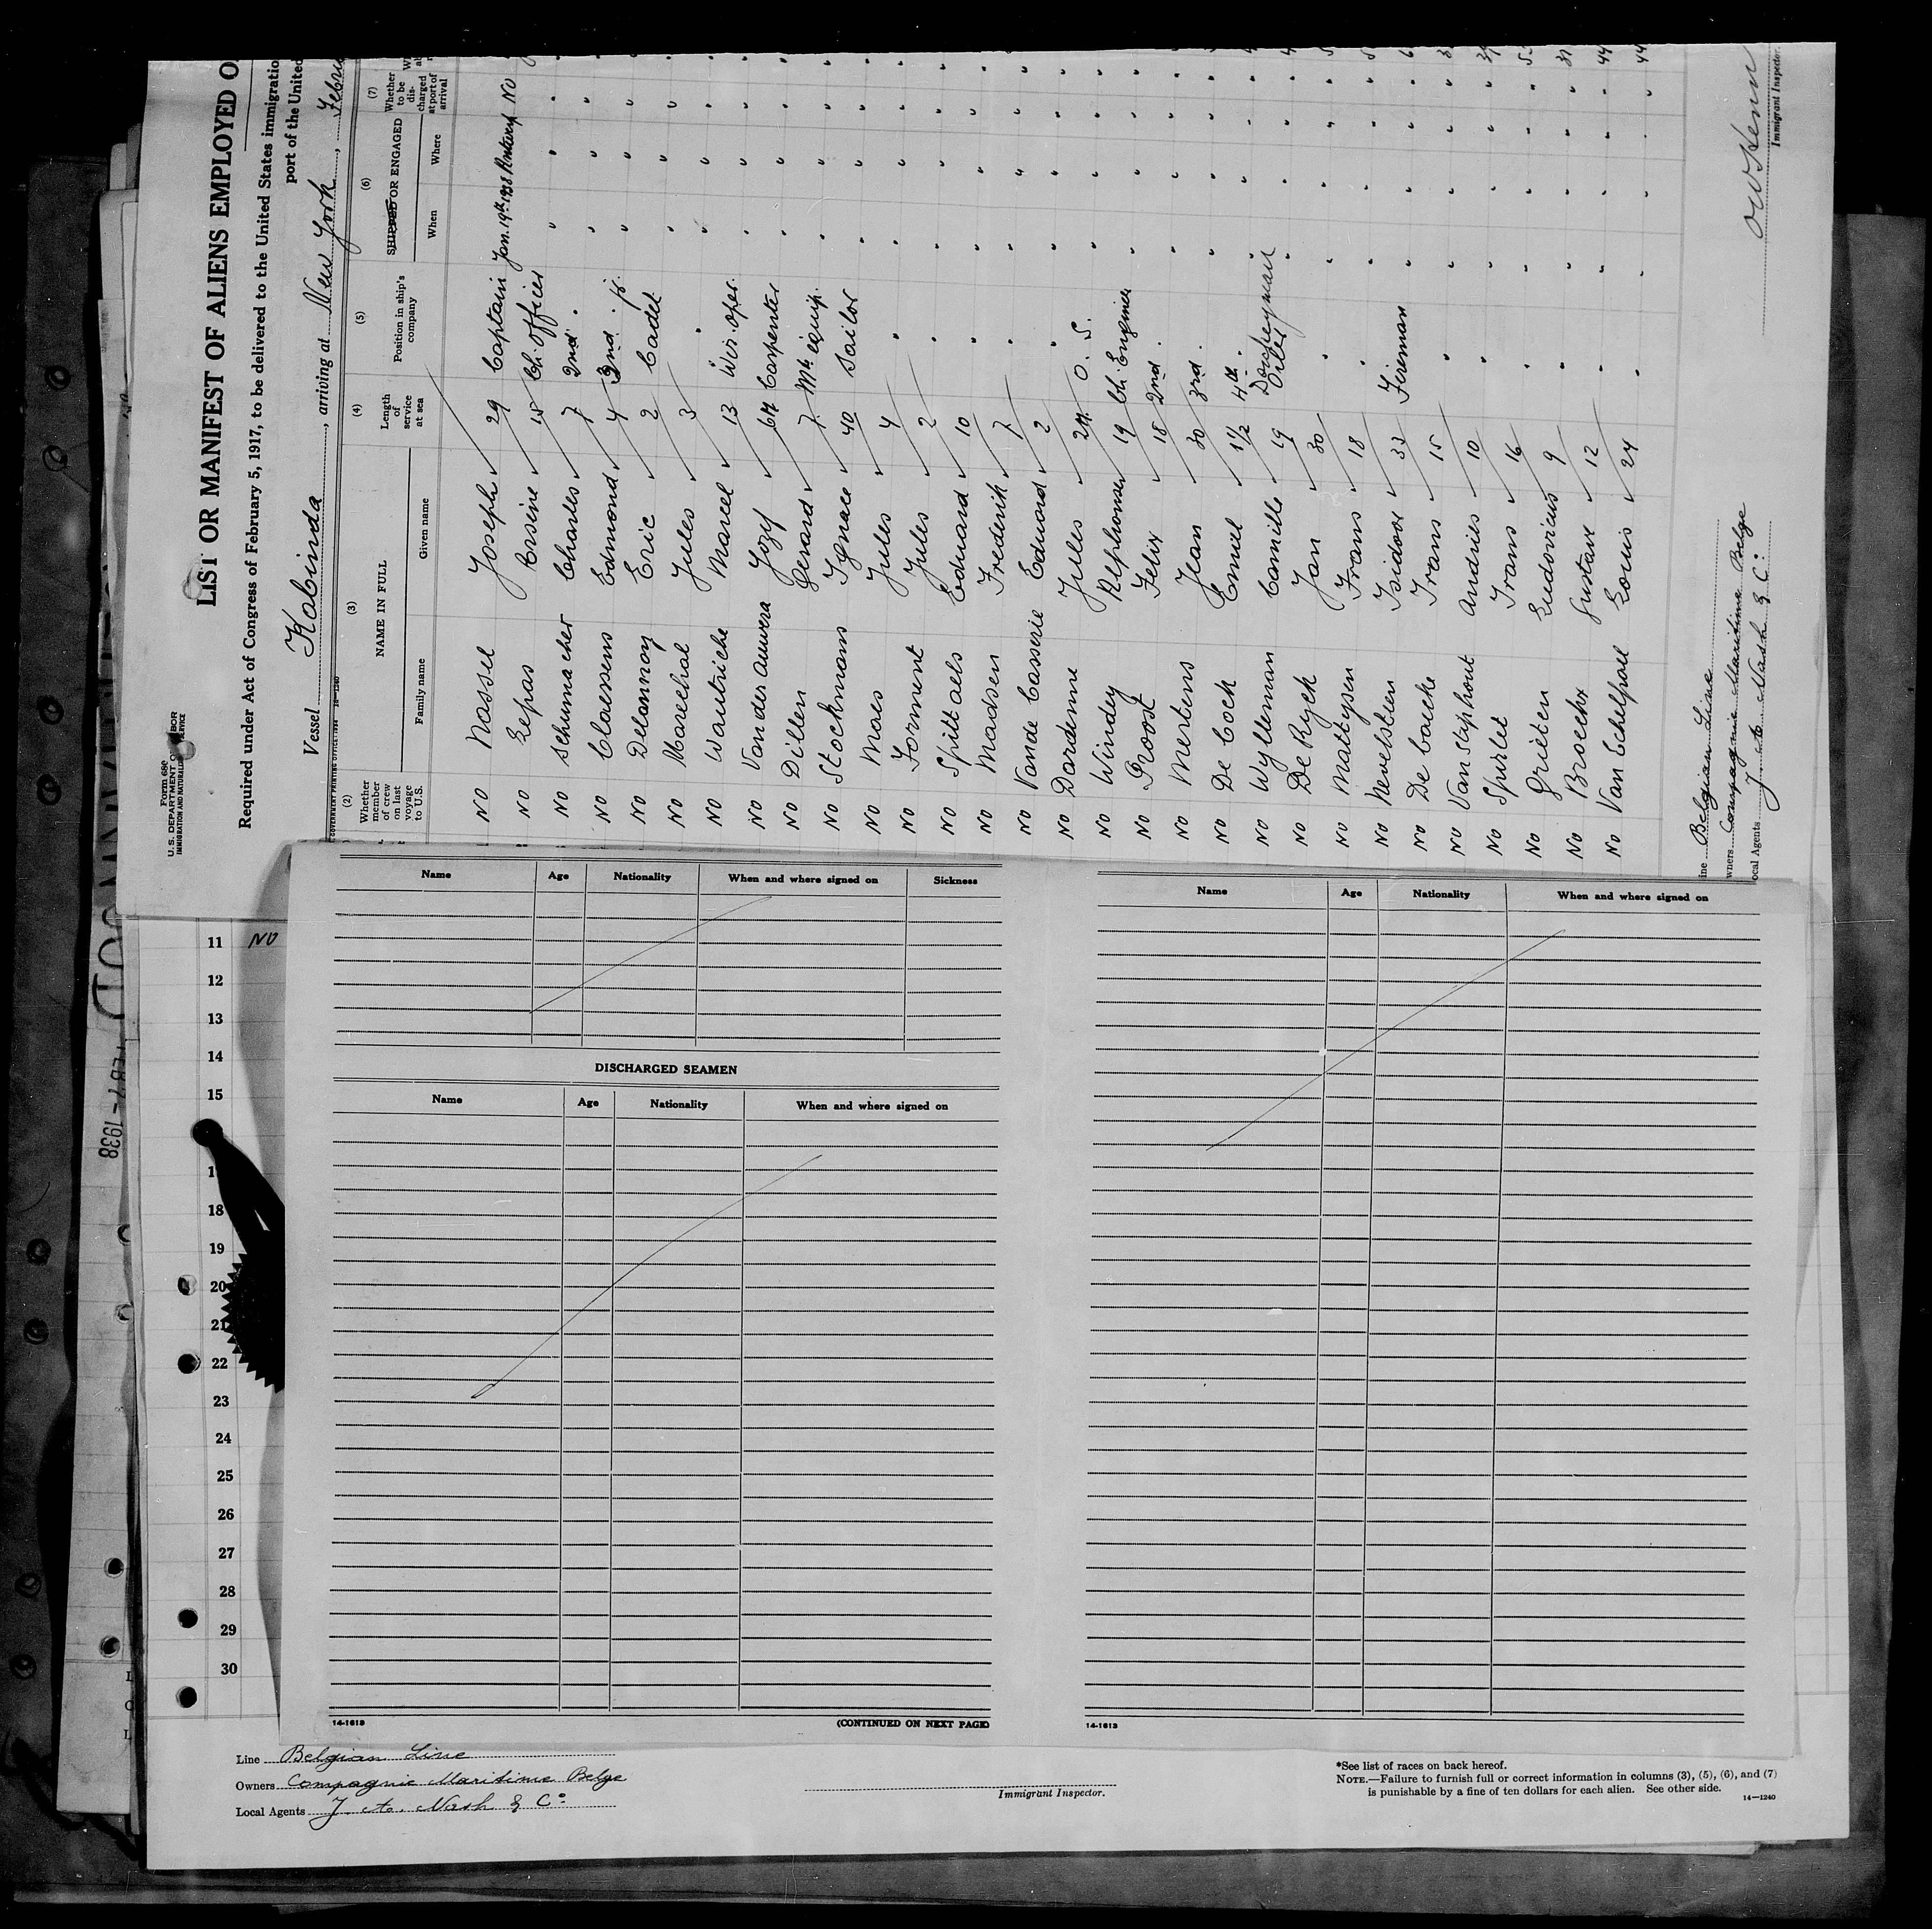 Form 680
U. S. DEPARTMENT OF LABOR
IMMIGRATION AND NATURALIZATION SERVICE
LIST OR MANIFEST OF ALIENS EMPLOYED O
Required under Act of Congress of February 5, 1917, to be delivered to the United States immigratio
port of the United
Vessel Kabinda, arriving at New York,
(2) (3) (4) (5) (6) (7)
Whether member of crew on last voyage to U.S.
NAME IN FULL
Family name Given name
Length of service at sea
Position in ship's company
SHIPPED OR ENGAGED
When Where
Whether to be discharged at port of arrival
NO Nassel Joseph 29 Captain Jan. 19th 1938 Antwerp NO
NO Lepas Ersine 15 Ch. Officer
NO Schumacher Charles 7 2nd "
NO Claessens Edmond 4 2nd " jr
NO Delannoy Eric 2 Cadet
NO Marechal Jules 3 "
NO Wautriche Marcel 13 Wir. oper.
NO Van der Auwera Jozef Carpenter
NO Dillen Gerard 7
NO Stockmans Ignace 40 Sailor
NO Maes Jules 4 "
NO Forment Jules 2 "
NO Spittaels Eduard 10 "
NO Madsen Frederik 7 "
NO Vande Casserie Eduard 2 "
NO Dardenne Jules O. S.
NO Windey Alphonse 19 Ch. Engineer
NO Proost Felix 18 2nd "
NO Mertens Jean 30 3rd "
NO De Cock Emiel 1½ 4th "
NO Wylleman Camille 19 Donkeyman
NO De Ryck Jan 30 Oiler
NO Mattysen Frans 18 "
NO Nevelsteen Isidoor 33 "
NO De Caecke Frans 15 Fireman
NO Van Stiphout Andries 10 "
NO Spurlet Frans 16 "
NO Grieten Ludovicus 9 "
NO Broeckx Gustaaf 12 "
NO Van Echelpoel Louis 24 "
ine Belgian Line
wners Compagnie Maritime Belge
ocal Agents J. A. Nash & Co.
Immigrant Inspector.
11 NO
12
13
14
15
18
19
20
21
22
23
24
25
26
27
28
29
30
Name Age Nationality When and where signed on Sickness
DISCHARGED SEAMEN
Name Age Nationality When and where signed on
14-1613 (CONTINUED ON NEXT PAGE)
Name Age Nationality When and where signed on
14-1613
Line Belgian Line
Owners Compagnie Maritime Belge
Local Agents J. A. Nash & Co.
Immigrant Inspector.
*See list of races on back hereof.
NOTE.—Failure to furnish full or correct information in columns (3), (5), (6), and (7)
is punishable by a fine of ten dollars for each alien. See other side.
14—1240